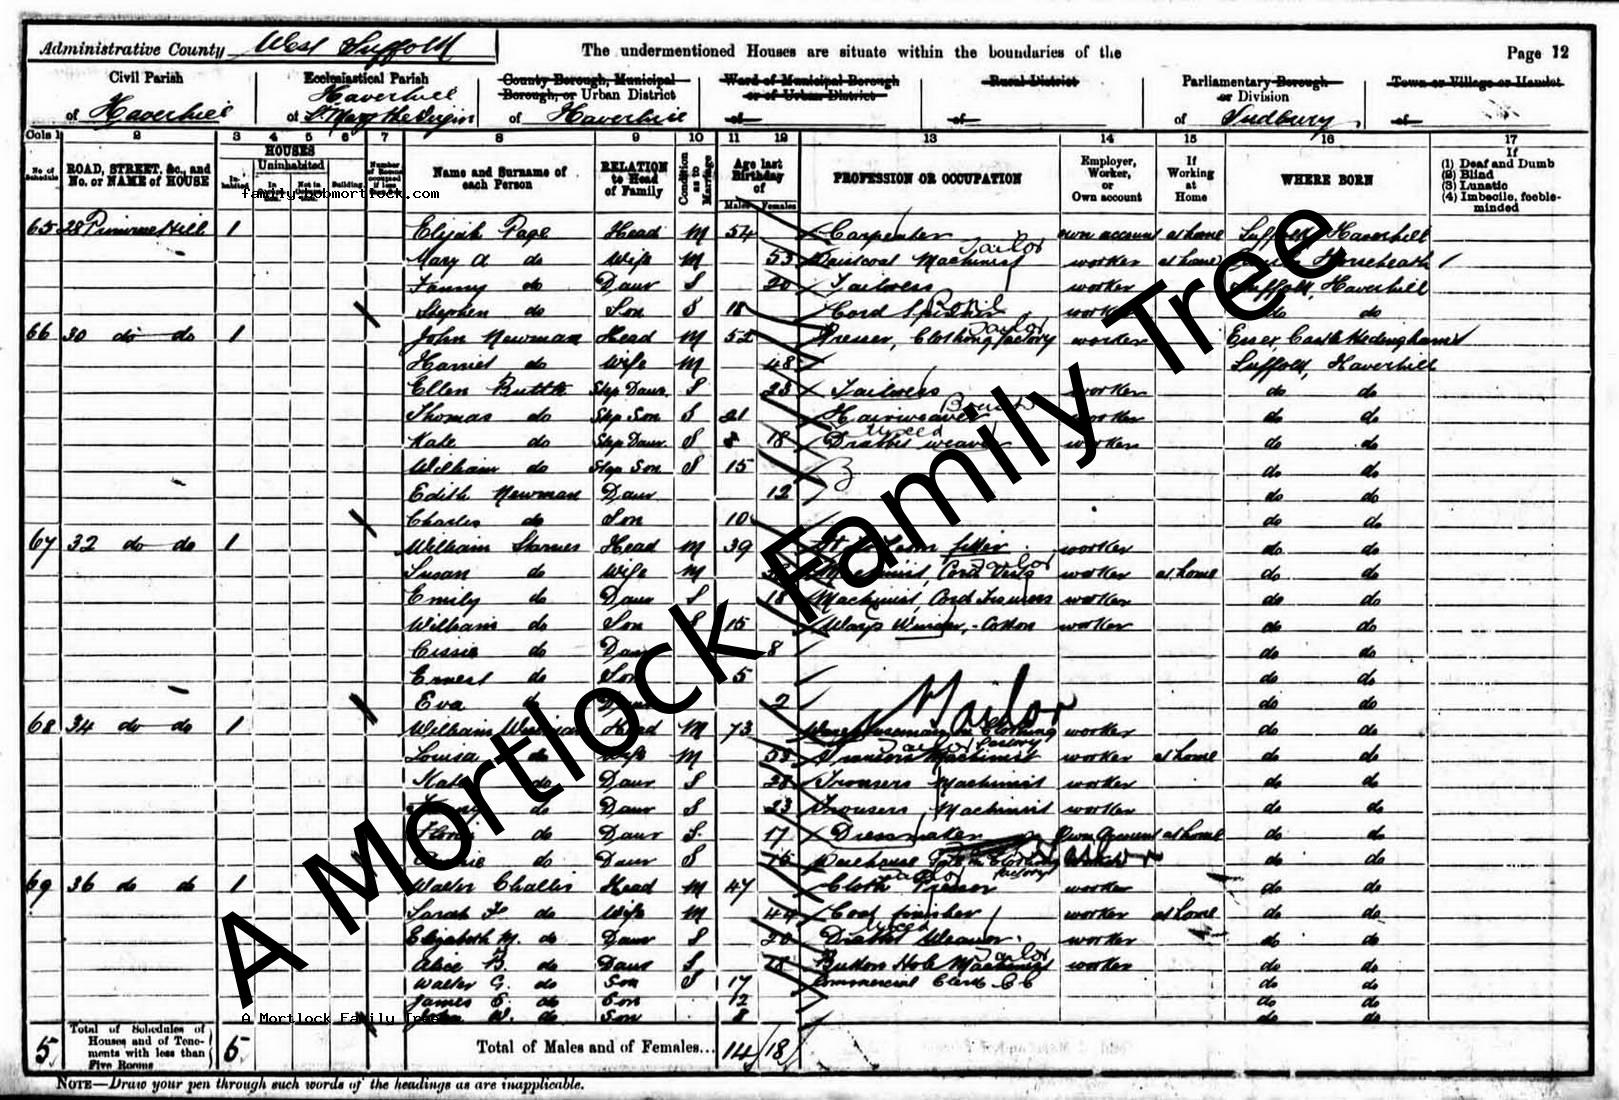 Administrative County West Suffolk The undermentioned Houses are situate within the boundaries of the Page 12
Civil Parish Ecclesiastical Parish County Borough, Municipal Borough, or Urban District Ward of Municipal Borough or of Urban District Rural District Parliamentary Borough or Division Town or Village or Hamlet
of Haverhill of Haverhill St Mary the Virgin of Haverhill of of Sudbury of
Cols 1 2 3 4 5 6 7 8 9 10 11 12 13 14 15 16 17
No. of Schedule ROAD, STREET, &c., and No. or NAME of HOUSE HOUSES Inhabited Uninhabited Building Name and Surname of each Person RELATION to Head of Family Condition as to Marriage Age last Birthday of Males Females PROFESSION OR OCCUPATION Employer, Worker, or Own account If Working at Home WHERE BORN If (1) Deaf and Dumb (2) Blind (3) Lunatic (4) Imbecile, feeble-minded
65 28 Primrose Hill 1 Elijah Page Head M 54 Carpenter own account at home Suffolk, Haverhill
Mary A do Wife M 53 Waistcoat Machinist Tailor worker at home Horseheath
Fanny do Daur S 20 Tailoress worker Suffolk, Haverhill
Stephen do Son S 18 Cord worker do do
66 30 do do 1 John Newman Head M 52 Presser, Clothing factory Tailor worker Essex, Castle Hedingham
Harriet do Wife M 48 Suffolk, Haverhill
Ellen Step Daur S 23 Tailoress worker do do
Thomas do Step Son S 21 Hairweaver worker do do
Kate do Step Daur S 8 18 Drabbet weaver worker do do
William do Step Son S 15 do do
Edith Newman Daur 12 do do
Charles do Son 10 do do
67 32 do do 1 William Starnes Head M 39 fitter worker do do
Susan do Wife M Machinist, Cord Vests Tailor worker at home do do
Emily do Daur S 18 Machinist, Cord Trousers worker do do
William do Son S 15 Warp Winder, - Cotton worker do do
Cissie do Daur 8 do do
Ernest do Son 5 do do
Eva do Daur 2 do do
68 34 do do 1 William Head M 73 Warehouseman in Clothing factory Tailor worker do do
Louisa do Wife M 53 Trousers Machinist worker at home do do
Kate do Daur S 28 Trousers Machinist worker do do
do Daur S 23 Trousers Machinist worker do do
do Daur S 17 Dressmaker Own Account at home do do
do Daur S Warehouse Clothing factory Tailor do do
69 36 do do 1 Walter Challis Head M 47 Cloth Presser Tailor worker do do
Sarah F do Wife M 44 Coat finisher worker at home do do
Elizabeth M. do Daur S 20 Drabbet Weaver worker do do
Alice B. do Daur S 18 Button Hole Machinist Tailor worker do do
Walter G. do Son S 17 Commercial Clerk do do
James E. do Son 12 do do
John W. do Son 8 do do
5 Total of Schedules of Houses and of Tenements with less than Five Rooms 5 Total of Males and of Females... 14 18
NOTE—Draw your pen through such words of the headings as are inapplicable.
A Mortlock Family Tree
family.robmortlock.com
A Mortlock Family Tree